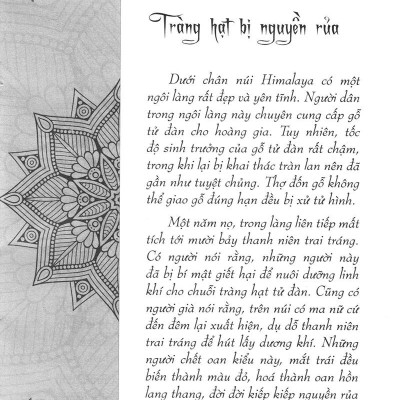 Tràng hạt bị nguyền rủa
Dưới chân núi Himalaya có một
ngôi làng rất đẹp và yên tĩnh. Người dân
trong ngôi làng này chuyên cung cấp gỗ
tử đàn cho hoàng gia. Tuy nhiên, tốc
độ sinh trưởng của gỗ tử đàn rất chậm,
trong khi lại bị khai thác tràn lan nên đã
gần như tuyệt chủng. Thợ đốn gỗ không
thể giao gỗ đúng hạn đều bị xử tử hình.
Một năm nọ, trong làng liên tiếp mất
tích tới mười bảy thanh niên trai tráng.
Có người nói rằng, những người này
đã bị bí mật giết hại để nuôi dưỡng linh
khí cho chuỗi tràng hạt tử đàn. Cũng có
người già nói rằng, trên núi có ma nữ cứ
đến đêm lại xuất hiện, dụ dỗ thanh niên
trai tráng để hút lấy dương khí. Những
người chết oan kiểu này, mắt trái đều
biến thành màu đỏ, hoá thành oan hồn
lang thang, đời đời kiếp kiếp nguyền rủa